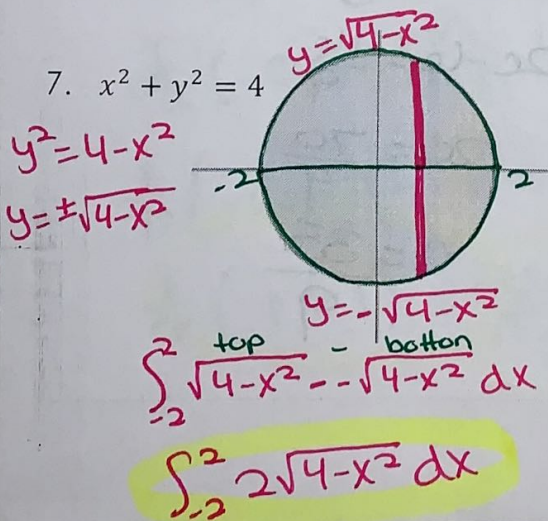 y=√4-x²
7. x² + y² = 4
y²=4-x²
y=±√4-x²
-2
2
y=-√4-x²
top - botton
∫₋₂² √4-x² - -√4-x² dx
∫₋₂² 2√4-x² dx